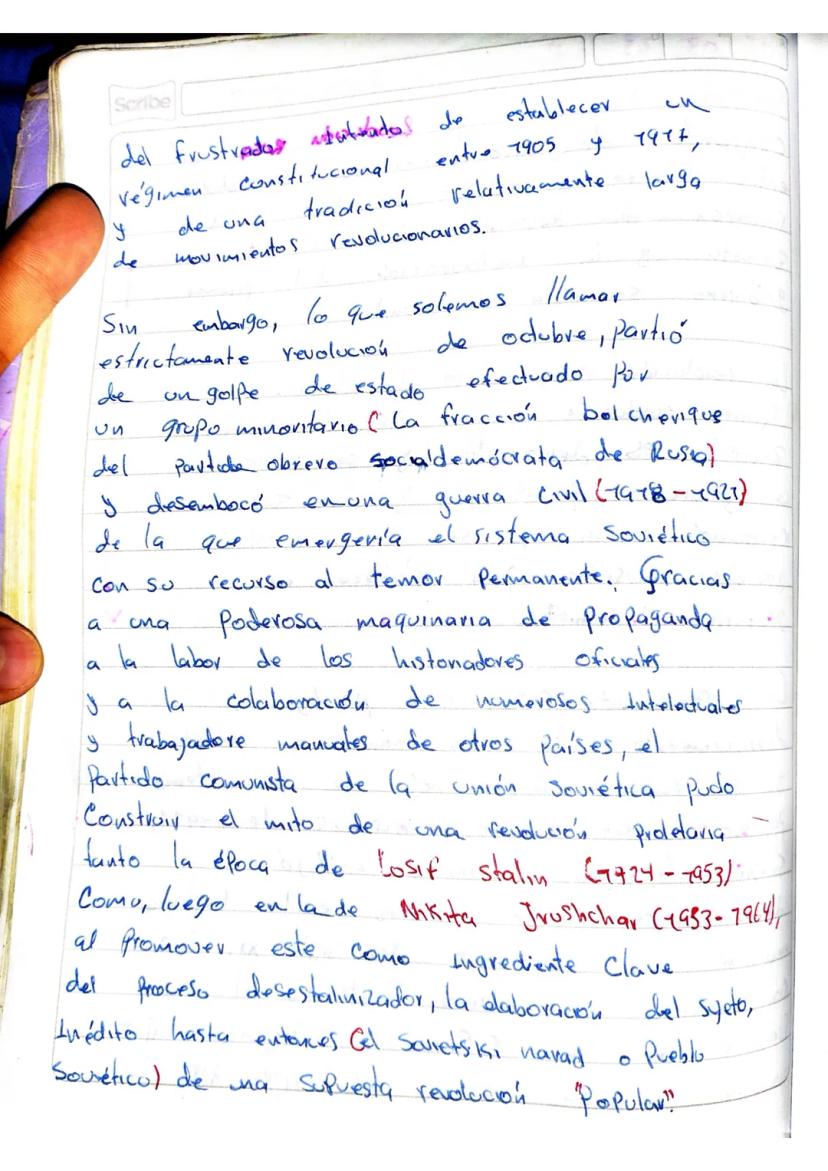 Scribe
del frustrados intentados de establecer un
régimen constitucional entre 1905 y 1917,
y de una tradición relativamente larga
de movimientos revolucionarios.
Sin embargo, lo que solemos llamar
estrictamente revolución de octubre, partió
de un golpe de estado efectuado por
un grupo minoritario ( La fracción bolchevique
del partido obrero socialdemócrata de Rusia)
y desembocó en una guerra civil (1918-1921)
de la que emergería el sistema Soviético
con su recurso al temor permanente. Gracias
a una poderosa maquinaria de propaganda
a la labor de los historiadores oficiales
y a la colaboración de numerosos intelectuales
y trabajadore manuales de otros países, el
Partido comunista de la unión soviética pudo
Construir el mito de una revolución proletaria
tanto la época de Iosif stalin (1924-1953)
Como, luego en la de Nikita Jrushchar (1953-1964),
al promover este como ingrediente clave
del proceso desestalinizador, la elaboración del sujeto,
inédito hasta entonces (el Sovietski narad o Pueblo
Soviético) de una supuesta revolución "Popular".